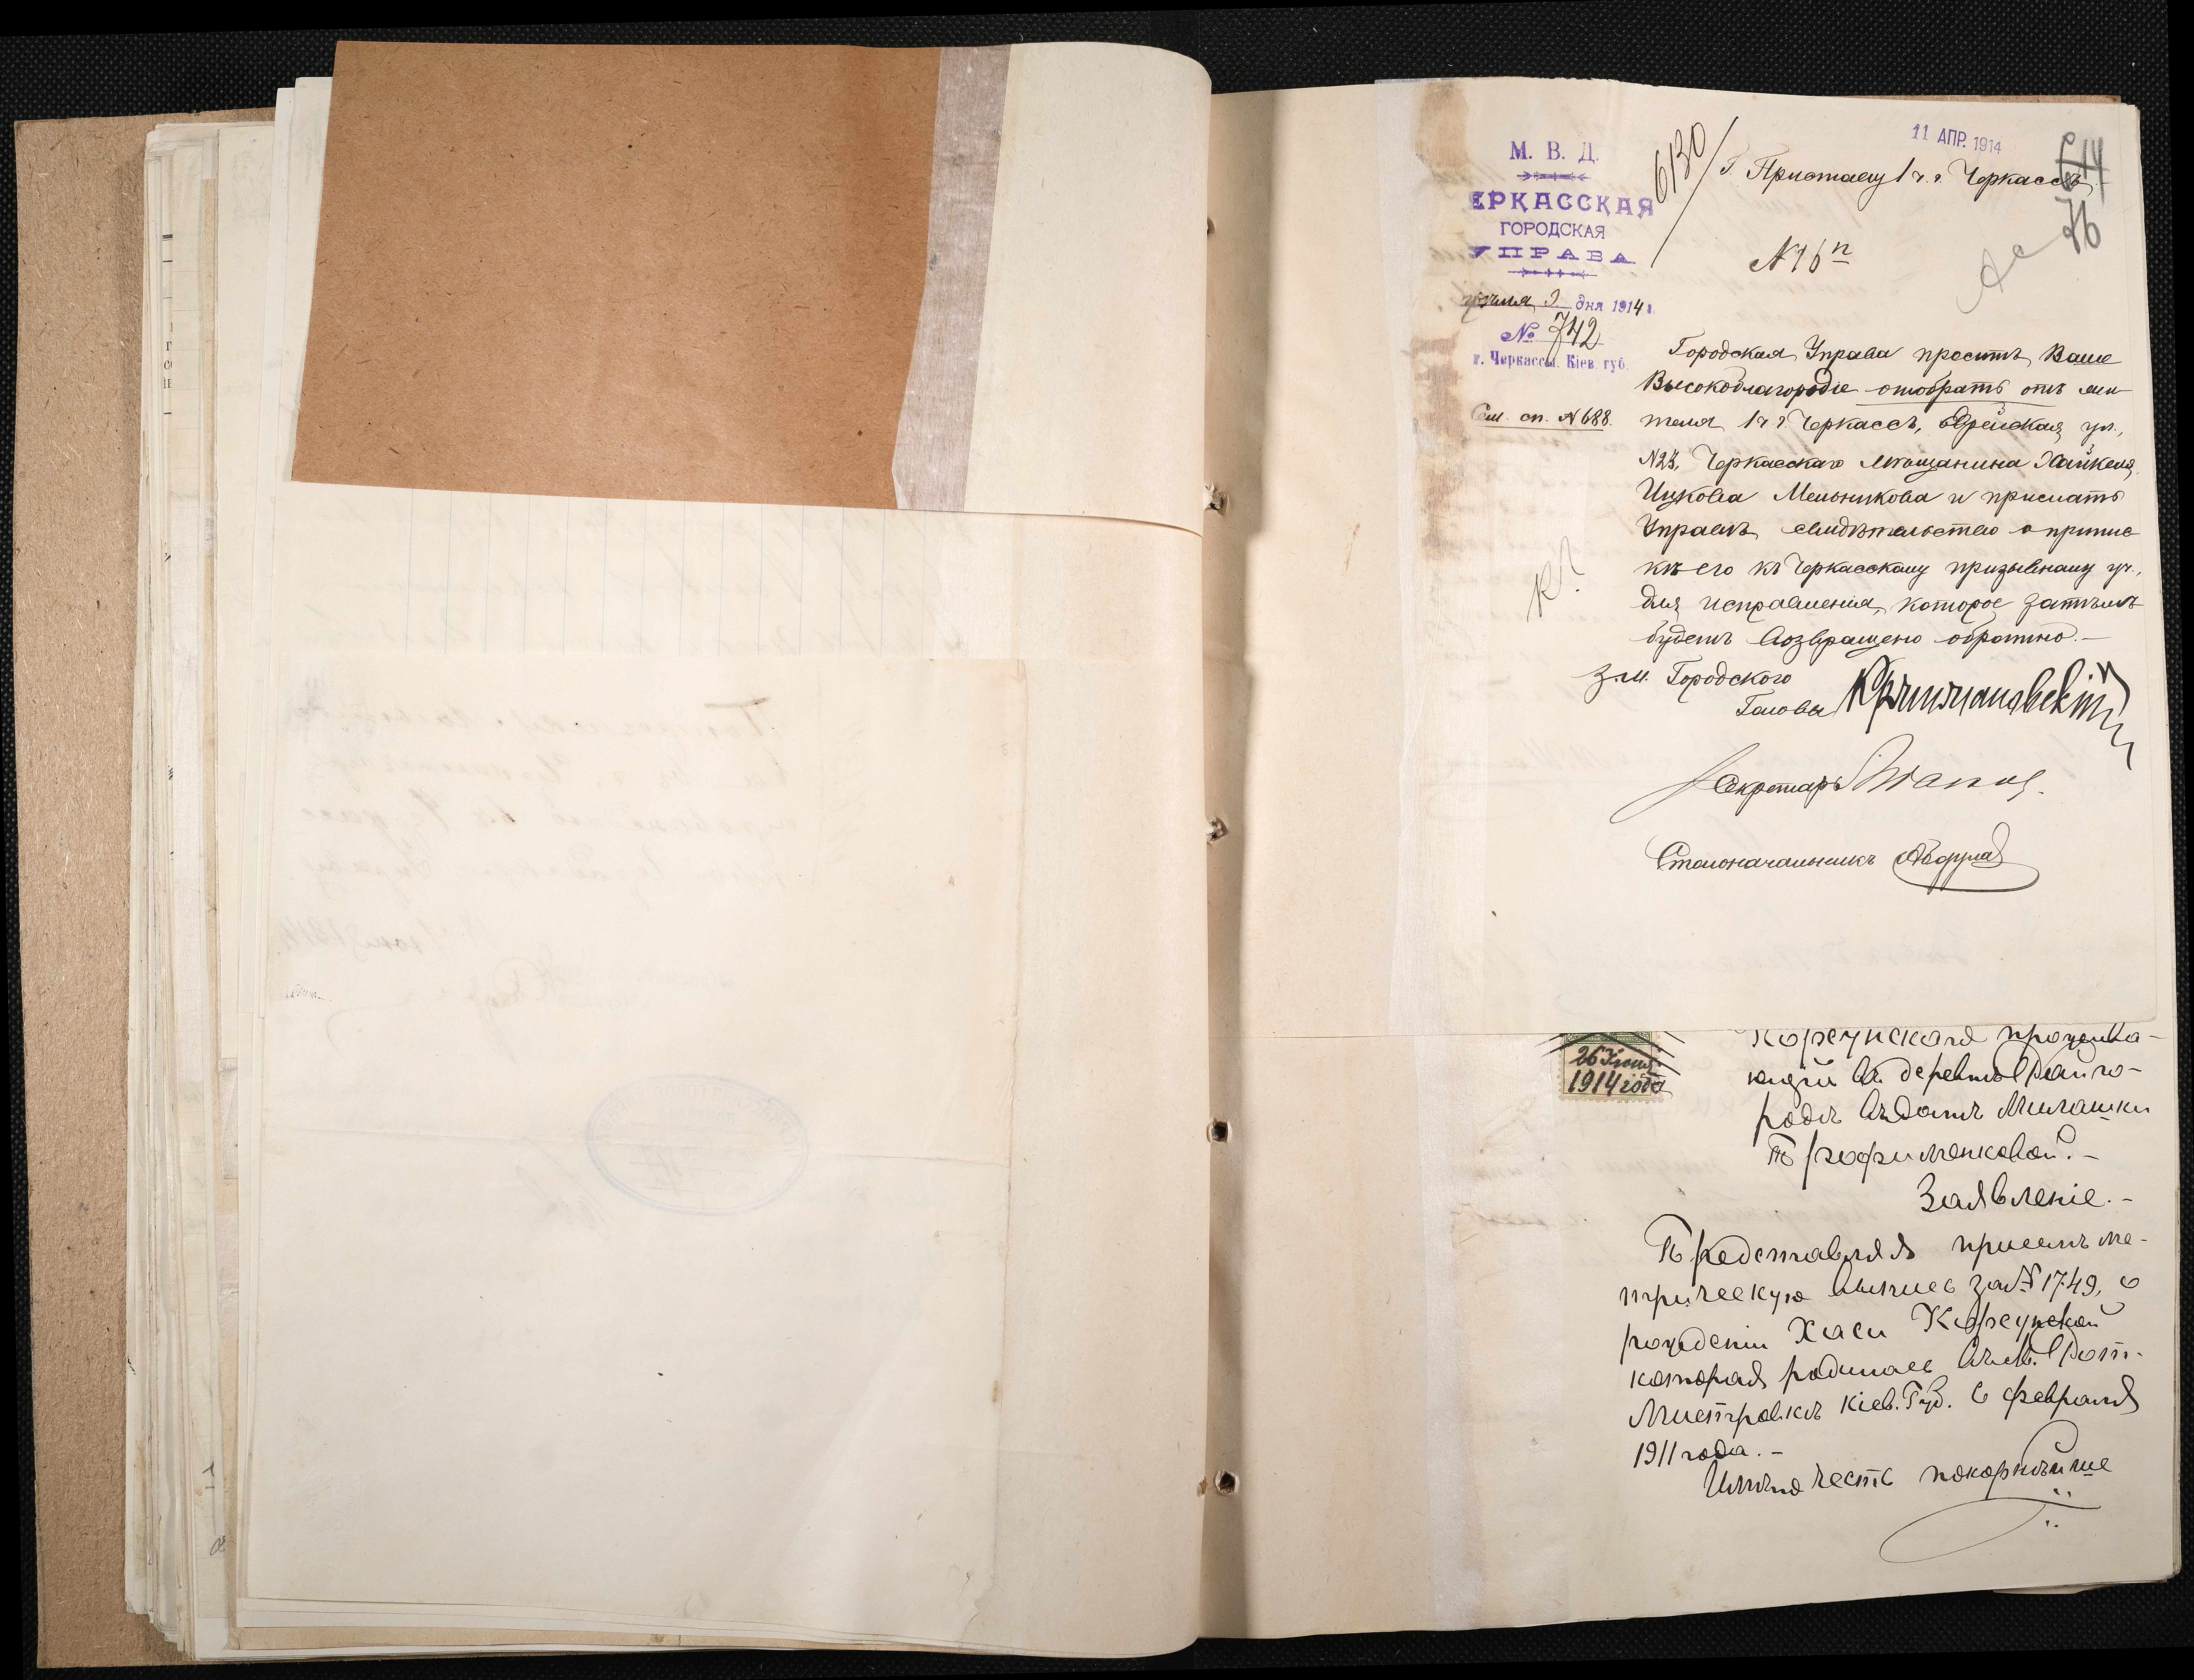 11 АПР. 1914
М. В. Д.
ЕРКАССКАЯ
ГОРОДСКАЯ
УПРАВА
9 дня 1914 г.
№ 742
г. Черкассы. Кіев. губ.
Сем. сп. №688.
6130
76
Г. Приставу 1 ч. г. Черкассъ.
Городская Управа проситъ Ваше
Высокоблагородіе отобрать отъ жи
теля 1 ч г. Черкассъ, ул.,
№23, Черкасскаго мѣщанина Хайкеля
Ицкова Мельникова и прислать
Управѣ свидѣтельство о припис
кѣ его къ Черкасскому призывному уч.,
для исправленія, которое затѣмъ
будетъ возвращено обратно.—
З.м. Городского
Головы
Секретарь
Столоначальникъ
26 Іюня
1914 года
Корсунская прожива-
ющій въ деревнѣ Райго-
родъ въ домѣ
Трофименковой.—
Заявленіе.—
Представляя присемъ ме-
трическую выпись за № 1749, о
рожденіи Хаси Корсунской
которая родилась въ м. Рот-
мистровкѣ Кіев. Губ. 6 февраля
1911 года.—
Имѣю честь покорнѣйше